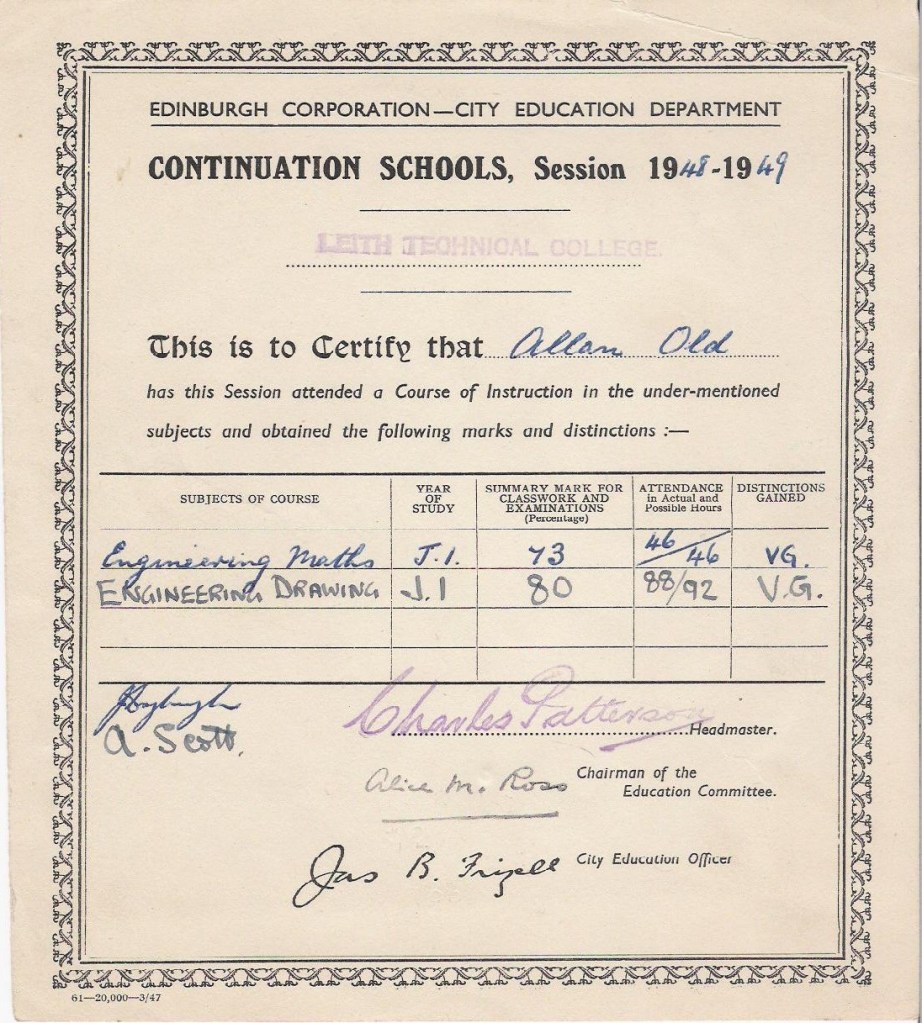 EDINBURGH CORPORATION—CITY EDUCATION DEPARTMENT
CONTINUATION SCHOOLS, Session 1948-1949
LEITH TECHNICAL COLLEGE.
This is to Certify that Allan Old
has this Session attended a Course of Instruction in the under-mentioned
subjects and obtained the following marks and distinctions :—
SUBJECTS OF COURSE
YEAR OF STUDY
SUMMARY MARK FOR CLASSWORK AND EXAMINATIONS (Percentage)
ATTENDANCE in Actual and Possible Hours
DISTINCTIONS GAINED
Engineering Maths J.1. 73 46/46 VG.
ENGINEERING DRAWING J.1 80 88/92 V.G.
A. Scott.
Charles Patterson Headmaster.
Alice M. Ross Chairman of the
Education Committee.
Jas B. Frizell City Education Officer
61—20,000—3/47